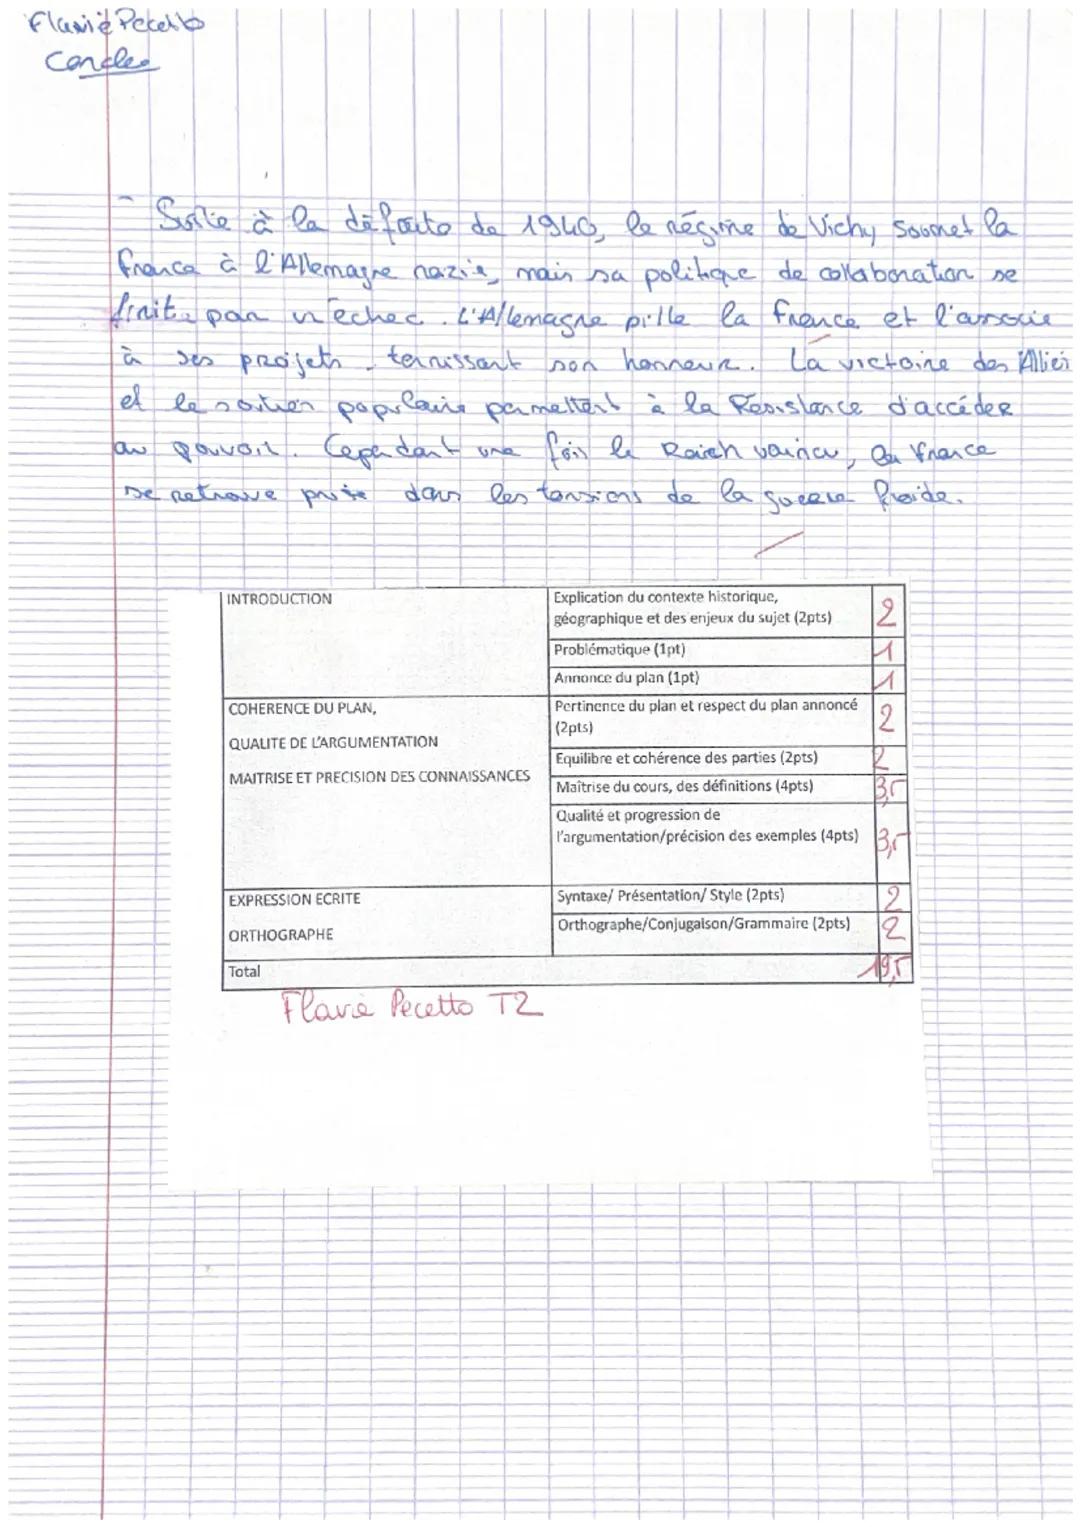 Flavie Pecetto
Conclu
Suite à la défaite de 1940, le régime de Vichy soumet la
france à l'Allemagne nazie, mais sa politique de collaboration se
finit par un échec. L'Allemagne pille la france et l'associe
à ses projets, ternissant son honneur. La victoire des Alliés
et le soutien populaire permettent à la Résistance d'accéder
au pouvoir. Cependant une fois le Reich vaincu, la france
se retrouve prise dans les tensions de la guerre froide.
INTRODUCTION
Explication du contexte historique,
géographique et des enjeux du sujet (2pts)
2
Problématique (1pt)
1
Annonce du plan (1pt)
1
COHERENCE DU PLAN,
QUALITE DE L'ARGUMENTATION
MAITRISE ET PRECISION DES CONNAISSANCES
Pertinence du plan et respect du plan annoncé
(2pts)
2
Equilibre et cohérence des parties (2pts)
2
Maîtrise du cours, des définitions (4pts)
3,5
Qualité et progression de
l'argumentation/précision des exemples (4pts)
3,5
EXPRESSION ECRITE
ORTHOGRAPHE
Syntaxe/ Présentation/ Style (2pts)
2
Orthographe/Conjugaison/Grammaire (2pts)
2
Total
19,5
Flavie Pecetto T2